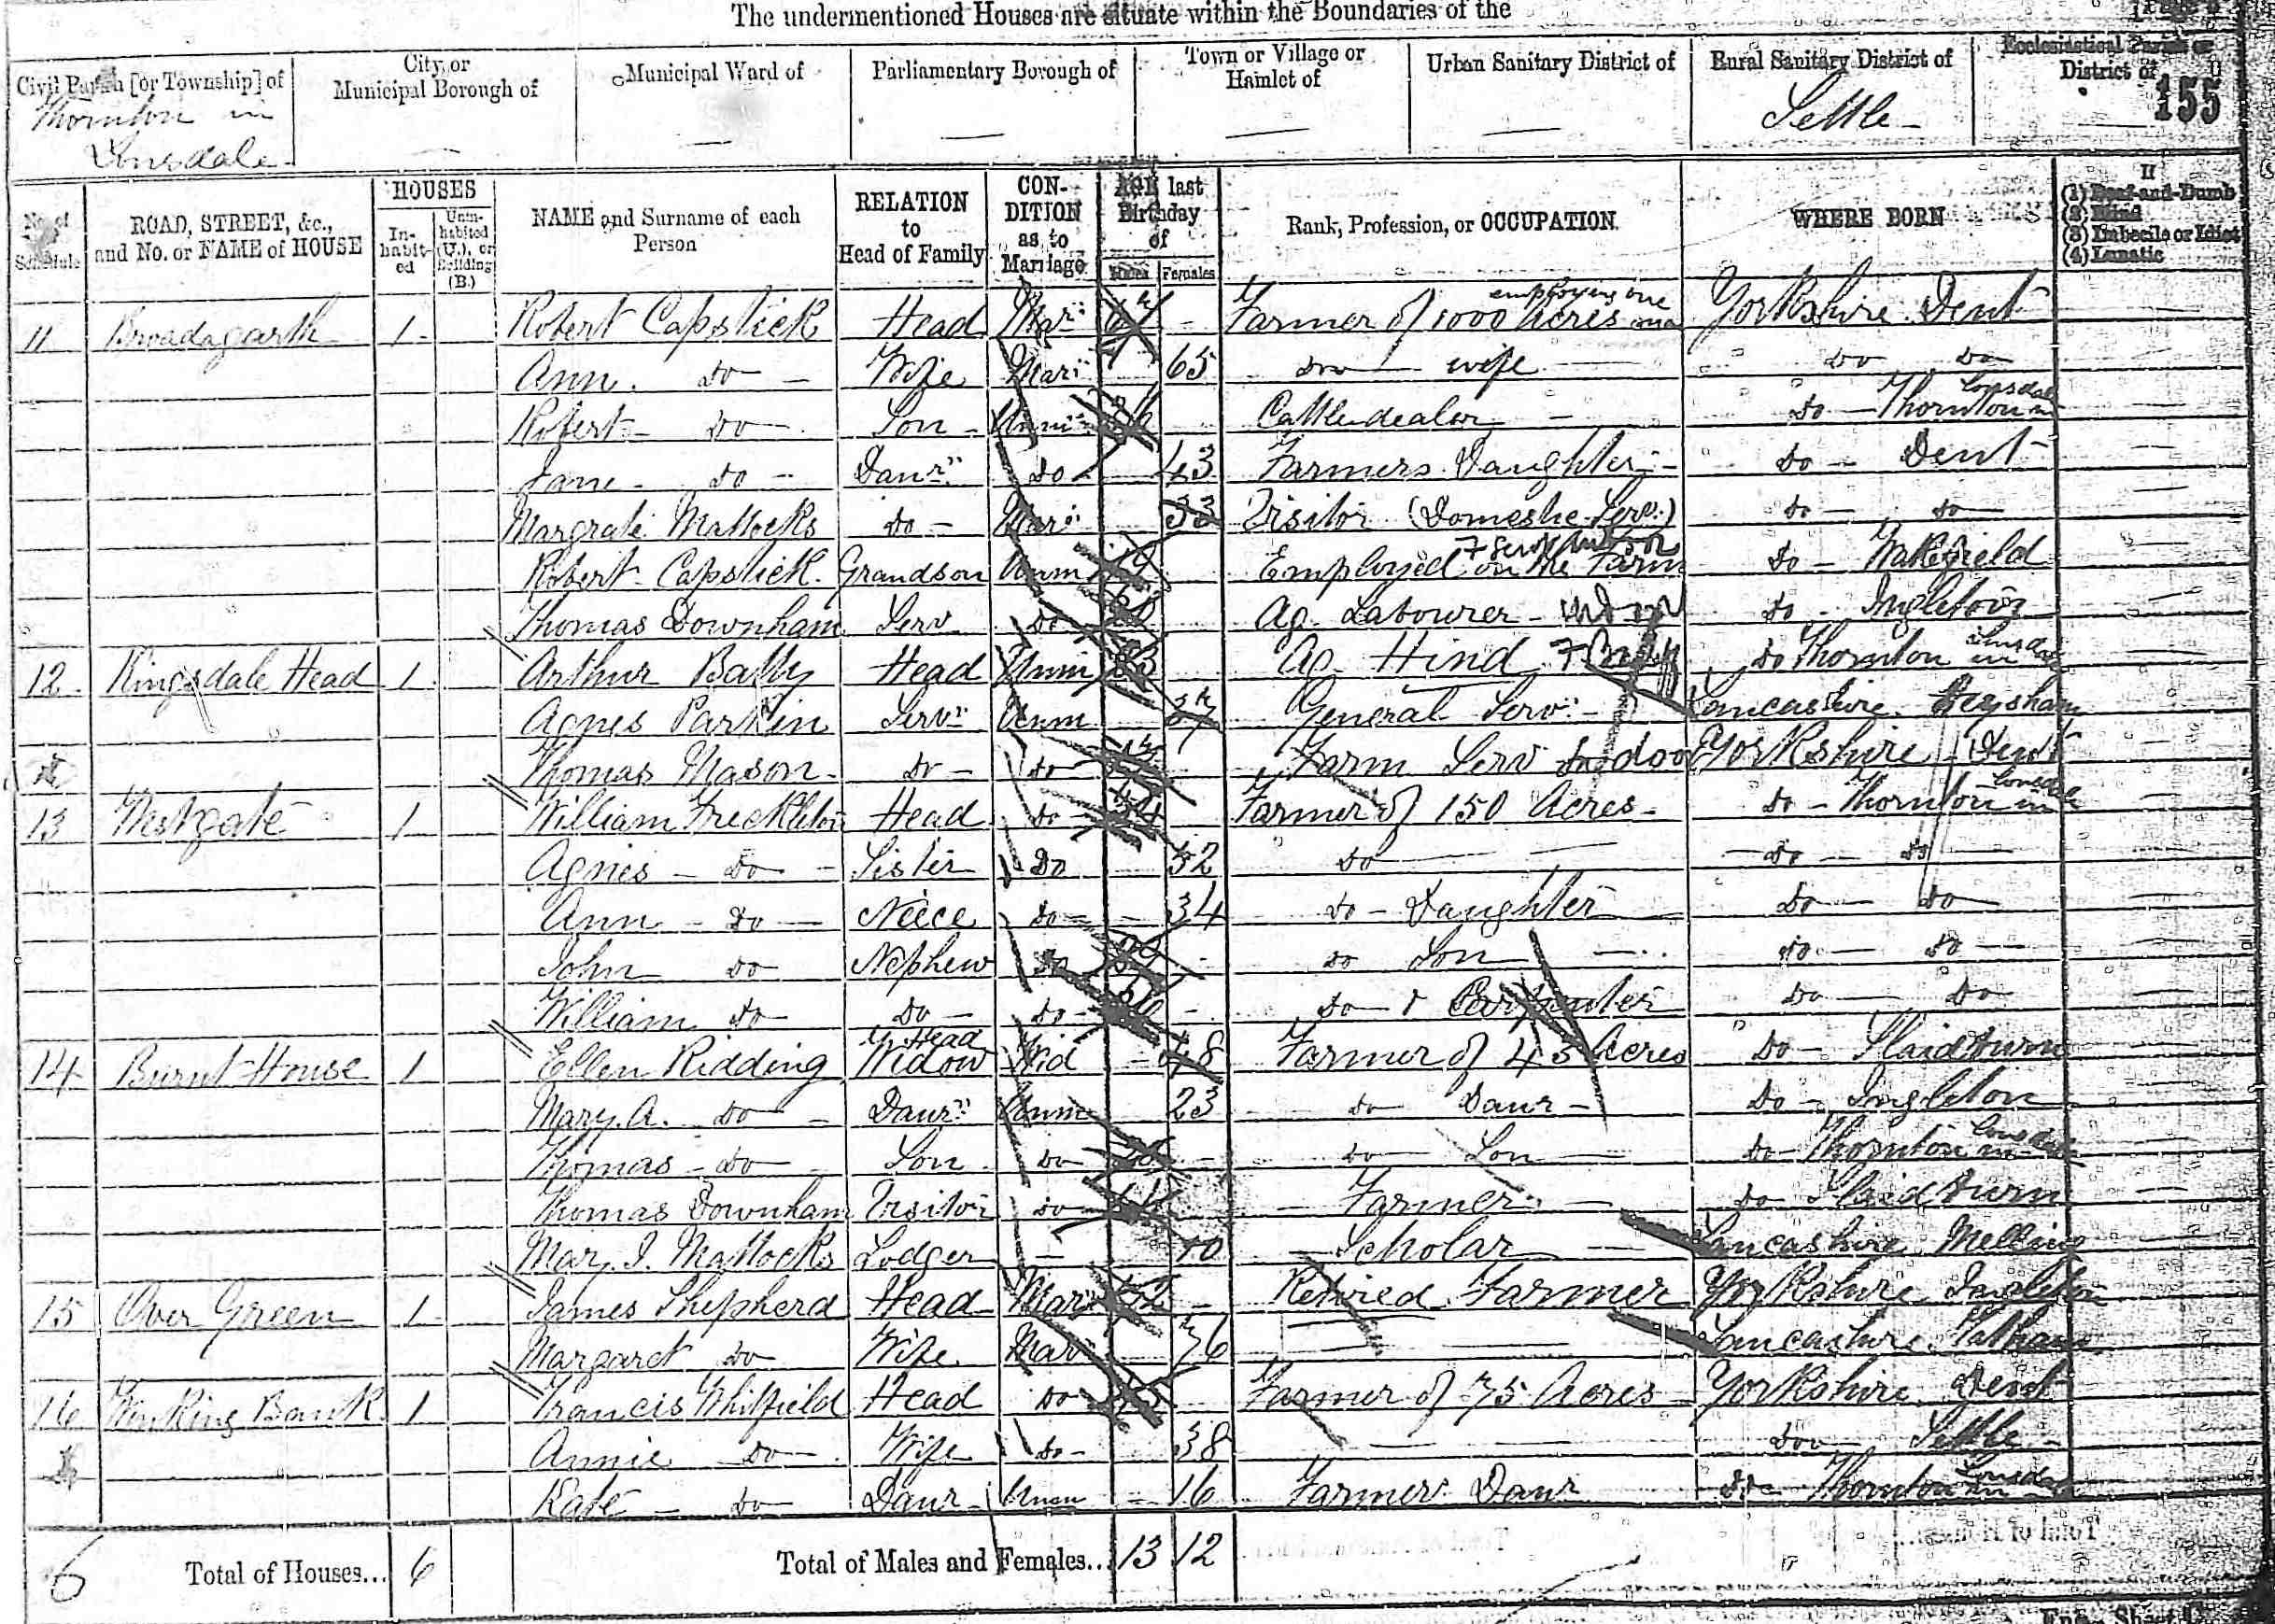 The undermentioned Houses are situate within the Boundaries of the
Civil Parish [or Township] of Thornton in Lonsdale
City or Municipal Borough of —
Municipal Ward of —
Parliamentary Borough of —
Town or Village or Hamlet of —
Urban Sanitary District of —
Rural Sanitary District of Settle
Ecclesiastical Parish or District of
155
No. of Schedule
ROAD, STREET, &c., and No. or NAME of HOUSE
HOUSES
In-habit-ed
Unin-habited (U.), or Building (B.)
NAME and Surname of each Person
RELATION to Head of Family
CON-DITION as to Marriage
AGE last Birthday of
Males Females
Rank, Profession, or OCCUPATION
WHERE BORN
If
(1) Deaf-and-Dumb
(2) Blind
(3) Imbecile or Idiot
(4) Lunatic
11 Broadagarth 1 Robert Capstick Head Mar 67 Farmer of 1000 Acres employing one man Yorkshire Dent
Ann Do Wife Mar 65 Do wife Do Do
Robert Do Son Unm Cattledealer Do Thornton in Lonsdale
Jane Do Daur Do 43 Farmers Daughter Do Dent
Margrate Mattocks Do Mar 33 Visitor (Domestic Serv) Do Do
Robert Capstick Grandson Unm Employed on the Farm Do Wakefield
Thomas Downham Serv Do Ag. Labourer Do Ingleton
12 Kingsdale Head 1 Arthur Batty Head Unm Ag. Hind Do Thornton in Lonsdale
Agnes Parkin Serv Unm 37 General Serv Lancashire Heysham
Thomas Mason Do Do Farm Serv Indoor Yorkshire Dent
13 Westgate 1 William Freckleton Head Do 54 Farmer of 150 Acres Do Thornton in Lonsdale
Agnes Do Sister Do 52 Do Do Do
Ann Do Neice Do 34 Do Daughter Do Do
John Do Nephew Do Do Son Do Do
William Do Do Do Do & Carpenter Do Do
14 Burnt House 1 Ellen Ridding Widow Head Wid 48 Farmer of 45 Acres Do Slaidburn
Mary. A. Do Daur Unm 23 Do Daur Do Ingleton
Thomas Do Son Do Do Son Do Thornton in Lonsdale
Thomas Downham Visitor Do Farmer Do Slaidburn
Mary. J. Mattocks Lodger — 10 Scholar Lancashire Melling
15 Over Green 1 James Shepherd Head Mar Retired Farmer Yorkshire Ingleton
Margaret Do Wife Mar 76 — Lancashire Tatham
16 Winking Bank 1 Francis Whitfield Head Do Farmer of 75 Acres Yorkshire Dent
Annie Do Wife Do 38 — Do Settle
Kate Do Daur Unm 16 Farmers Daur Do Thornton in Lonsdale
6 Total of Houses... 6 Total of Males and Females... 13 12